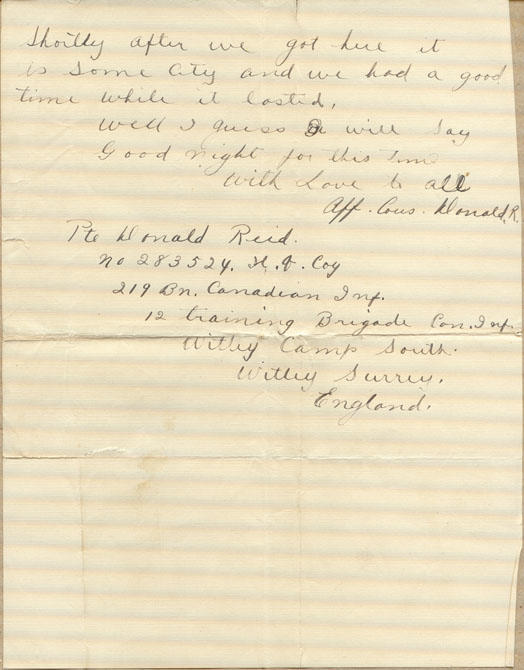 Shortly after we got here it
is some City and we had a good
time while it lasted,
Well I guess I will say
Good night for this time
With Love to all
Aff. Cous. Donald R.
Pte Donald Reid.
no 283524. H.Q. Coy
219 Bn. Canadian Inf.
12 training Brigade Can. Inf.
Witley Camp South.
Witley Surrey.
England.